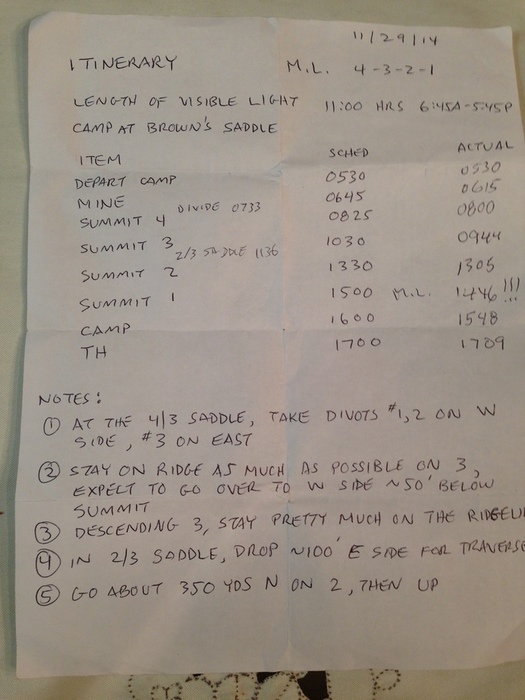 11/29/14
ITINERARY M.L. 4-3-2-1
LENGTH OF VISIBLE LIGHT 11:00 HRS 6:45A-5:45P
CAMP AT BROWN'S SADDLE
ITEM SCHED ACTUAL
DEPART CAMP 0530 0530
MINE 0645 0615
DIVIDE 0733
SUMMIT 4 0825 0800
SUMMIT 3 1030 0944
2/3 SADDLE 1136
SUMMIT 2 1330 1305
SUMMIT 1 1500 M.L. 1446 !!!
CAMP 1600 1548
TH 1700 1709
NOTES:
① AT THE 4/3 SADDLE, TAKE DIVOTS #1,2 ON W
SIDE, #3 ON EAST
② STAY ON RIDGE AS MUCH AS POSSIBLE ON 3,
EXPECT TO GO OVER TO W SIDE ~50' BELOW
SUMMIT
③ DESCENDING 3, STAY PRETTY MUCH ON THE RIDGELI
④ IN 2/3 SADDLE, DROP ~100' E SIDE FOR TRAVERSE
⑤ GO ABOUT 350 YDS N ON 2, THEN UP